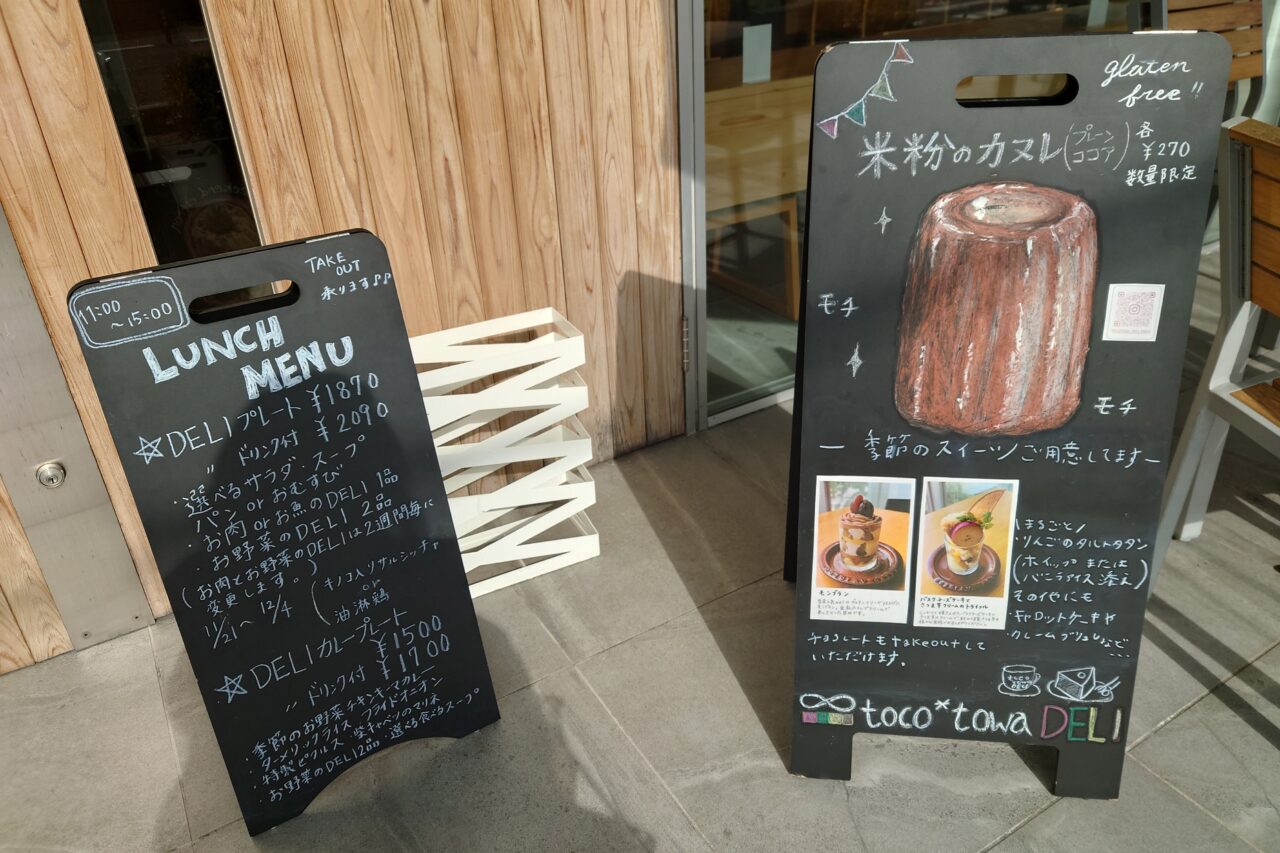 11:00
~15:00
TAKE
OUT
承ります♪♪
LUNCH
MENU
☆DELIプレート ¥1870
〃 ドリンク付 ¥2090
・選べるサラダ・スープ
パン or おむすび
・お肉 or お魚のDELI 1品
・お野菜のDELI 2品
(お肉とお野菜のDELIは2週間毎に
変更します。)
11/21 12/4
(キノコ入りサルシッチャ
or
油淋鶏)
☆DELIカレープレート
¥1500
〃 ドリンク付 ¥1700
・季節のお野菜チキンキーマカレー
・ターメリックライス・フライドオニオン
・特製ピクルス・紫キャベツのマリネ
・お野菜のDELI2品・選べる食べるスープ
gluten
free!!
米粉のカヌレ(プレーン
ココア)
各
¥270
数量限定
モチ
モチ
― 季節のスイーツご用意してます ―
モンブラン
まるごと/
りんごのタルトタタン
(ホイップ または
バニラアイス 添え)
その他にも
・キャロットケーキや
・クレームブリュレなど
...
チョコレートもtakeoutして
いただけます。
toco
toco*towa DELI